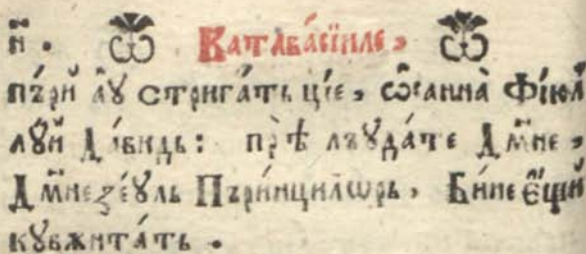 н҃. Катава́сїиле,
пъ́рй а҆ꙋ стрига́ть ціе, ѡ҆санна̀ Фі́юл
лꙋ́й Да́видь: прѣ лъꙋда́те Дм҃не,
Дм҃неꙁе́ꙋль Пъри́нцилѡрь, Би́не є҆щй
кꙋвжнта́ть.